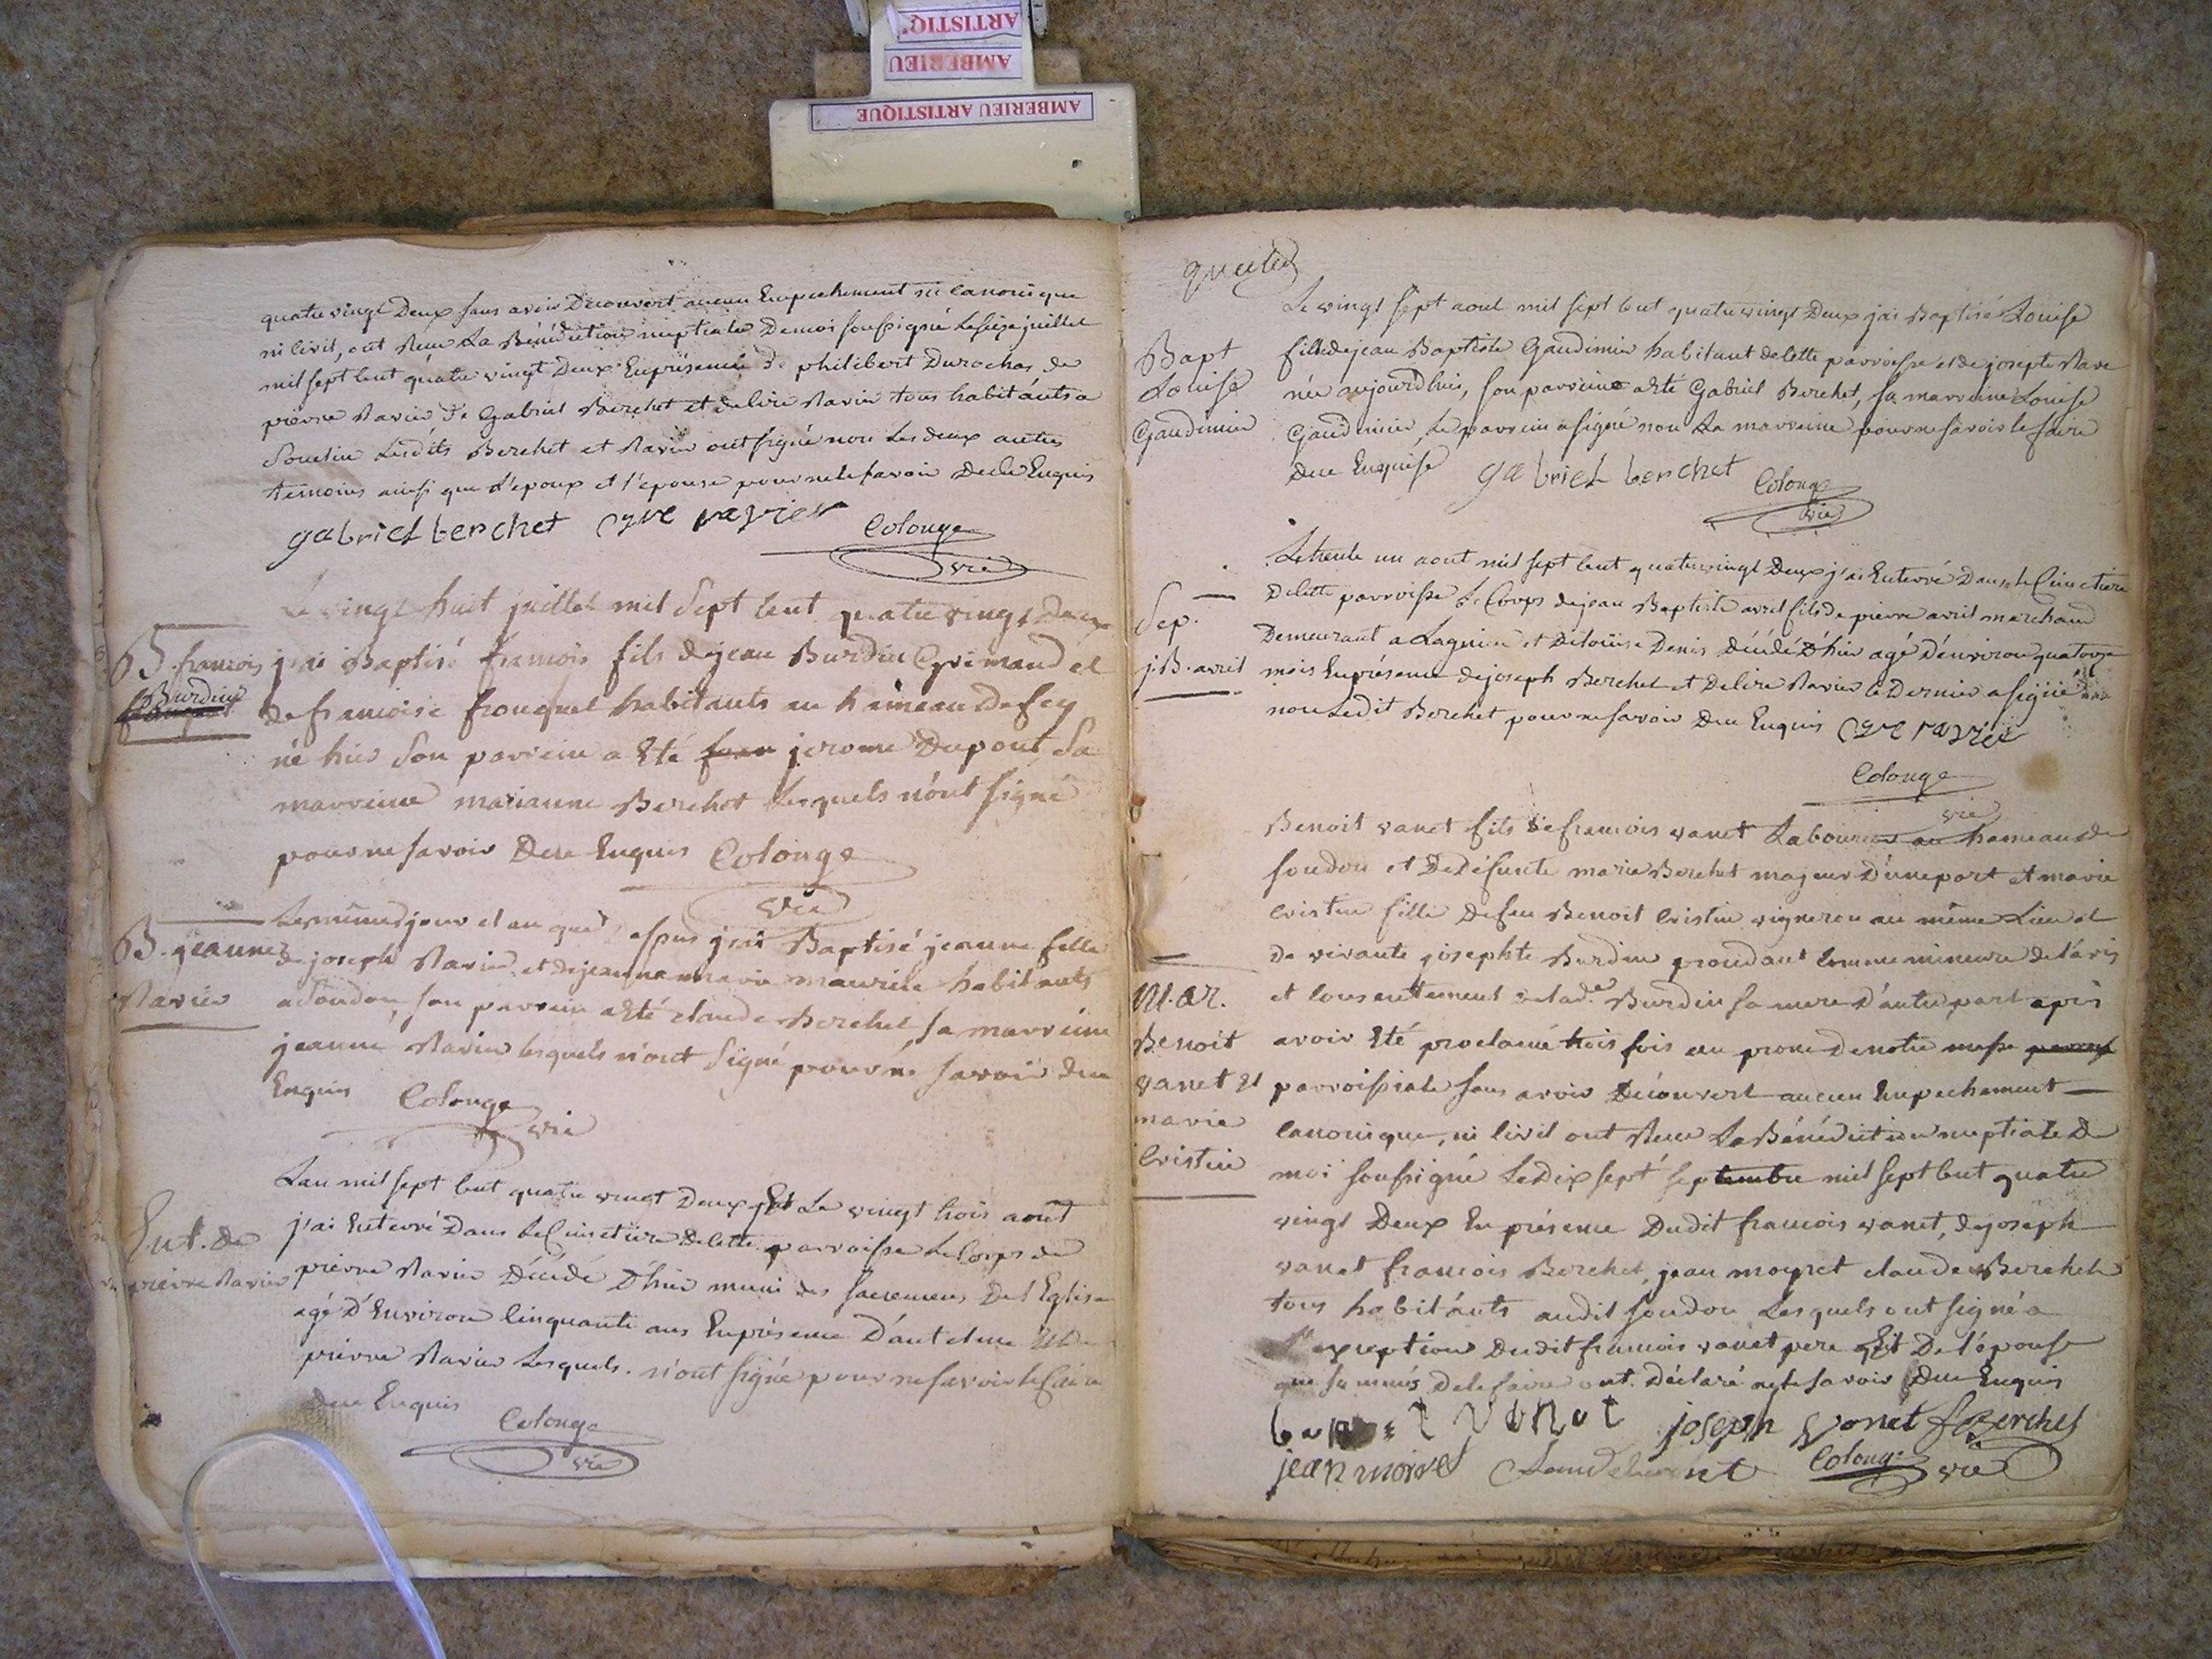 ARTISTIQ'
AMBERIEU
AMBERIEU ARTISTIQUE
quatre vingt Deux sans avoir Decouvert aucun Empechement ni Canonique
ni Civil, ont Reçu La Bénédiction nuptiale De moi soussigné Le seize juillet
mil sept Cent quatre vingt Deux En présence De philibert Durochas de
pierre Ravier De Gabriel Berchet et de Cire Ravier tous habitants a
Soudon Lesdits Berchet et Ravier ont signé non Les deux autres
temoins ainsi que L'epoux et l'epouse pour ne le savoir De ce Enquis
gabriel berchet cyre ravier Colonge
vic
Le vingt huit juillet mil Sept Cent quatre vingt Deux
B. francois
Burdin
j'ai Baptisé francois fils de jean Burdin Grimaud et
de francoise fronquet habitants au hameau De fey
né hier Son parrein a Eté jerome Dupont, Sa
marreine marianne Berchet Lesquels n'ont signé
pour ne savoir De ce Enquis Colonge
vic
Le même jour et an que Dessus j'ai Baptisé jeanne fille
B. jeanne
Ravier
de joseph Ravier et de jeanne marie maurice habitants
a Soudon, son parrein a Eté claude Berchet, sa marreine
jeanne Ravier lesquels n'ont Signé pour ne savoir de ce
Enquis Colonge
vic
L'an mil sept Cent quatre vingt Deux Et Le vingt trois aout
Ent. de
pierre Ravier
j'ai Enterré Dans Le Cimetiere De Cette parroisse Le Corps de
pierre Ravier Décédé D'hier muni des sacremens De l'Eglise
agé D'Environ Cinquante ans En présence D'antelme et De
pierre Ravier Lesquels n'ont signé pour ne savoir le faire
De ce Enquis
Colonge
vic
Le vingt sept aout mil sept Cent quatre vingt Deux j'ai Baptisé Louise
Bapt
Louise
Gaudimier
fille de jean Baptiste Gaudimier habitant de Cette parroisse et de josepte Rave
née aujourd'hui, son parrein a Eté Gabriel Berchet, sa marreine Louise
Gaudimier, Le parrein a signé non La marreine pour ne savoir le faire
De ce Enquise gabriel berchet Colonge
vic
Le trente un aout mil sept Cent quatre vingt Deux j'ai Enterré Dans le Cimetiere
Sep.
j. B. avril
De Cette parroisse Le Corps de jean Baptiste avril fils de pierre avril marchand
Demeurant a Lagnieu et De Louise Denis Décédé D'hier agé D'environ quatorze
mois En présence de joseph Berchet et De Cire Ravier Ce Dernier a signé
non Ledit Berchet pour ne savoir De ce Enquis cyre ravier
Colonge
vic
Benoit vanet fils de francois vanet Laboureur au hameau de
soudon et De Défunte marie Berchet majeur D'une part et marie
Cristin fille De feu Benoit Cristin vigneron au même Lieu et
de vivante josephte Burdin procedant Comme mineure de l'avis
Mar.
Benoit
vanet et
marie
Cristin
et Consentement de lad.e Burdin sa mere D'autre part après
avoir Eté proclamé trois fois au prone De notre messe
parroissiale sans avoir Découvert aucun Empechement
Canonique, ni Civil ont Reçu La Bénédiction nuptiale De
moi soussigné Le Dix sept septembre mil sept Cent quatre
vingt Deux En présence Dudit francois vanet, de joseph
vanet francois Berchet, jean moyret claude Berchet
tous habitants audit soudon Lesquels ont signé a
l'exception dudit francois vanet pere Et De l'épouse
De le faire ont Déclaré ne le savoir De ce Enquis
joseph vanet f Berchet
jean moiret Colonge vic